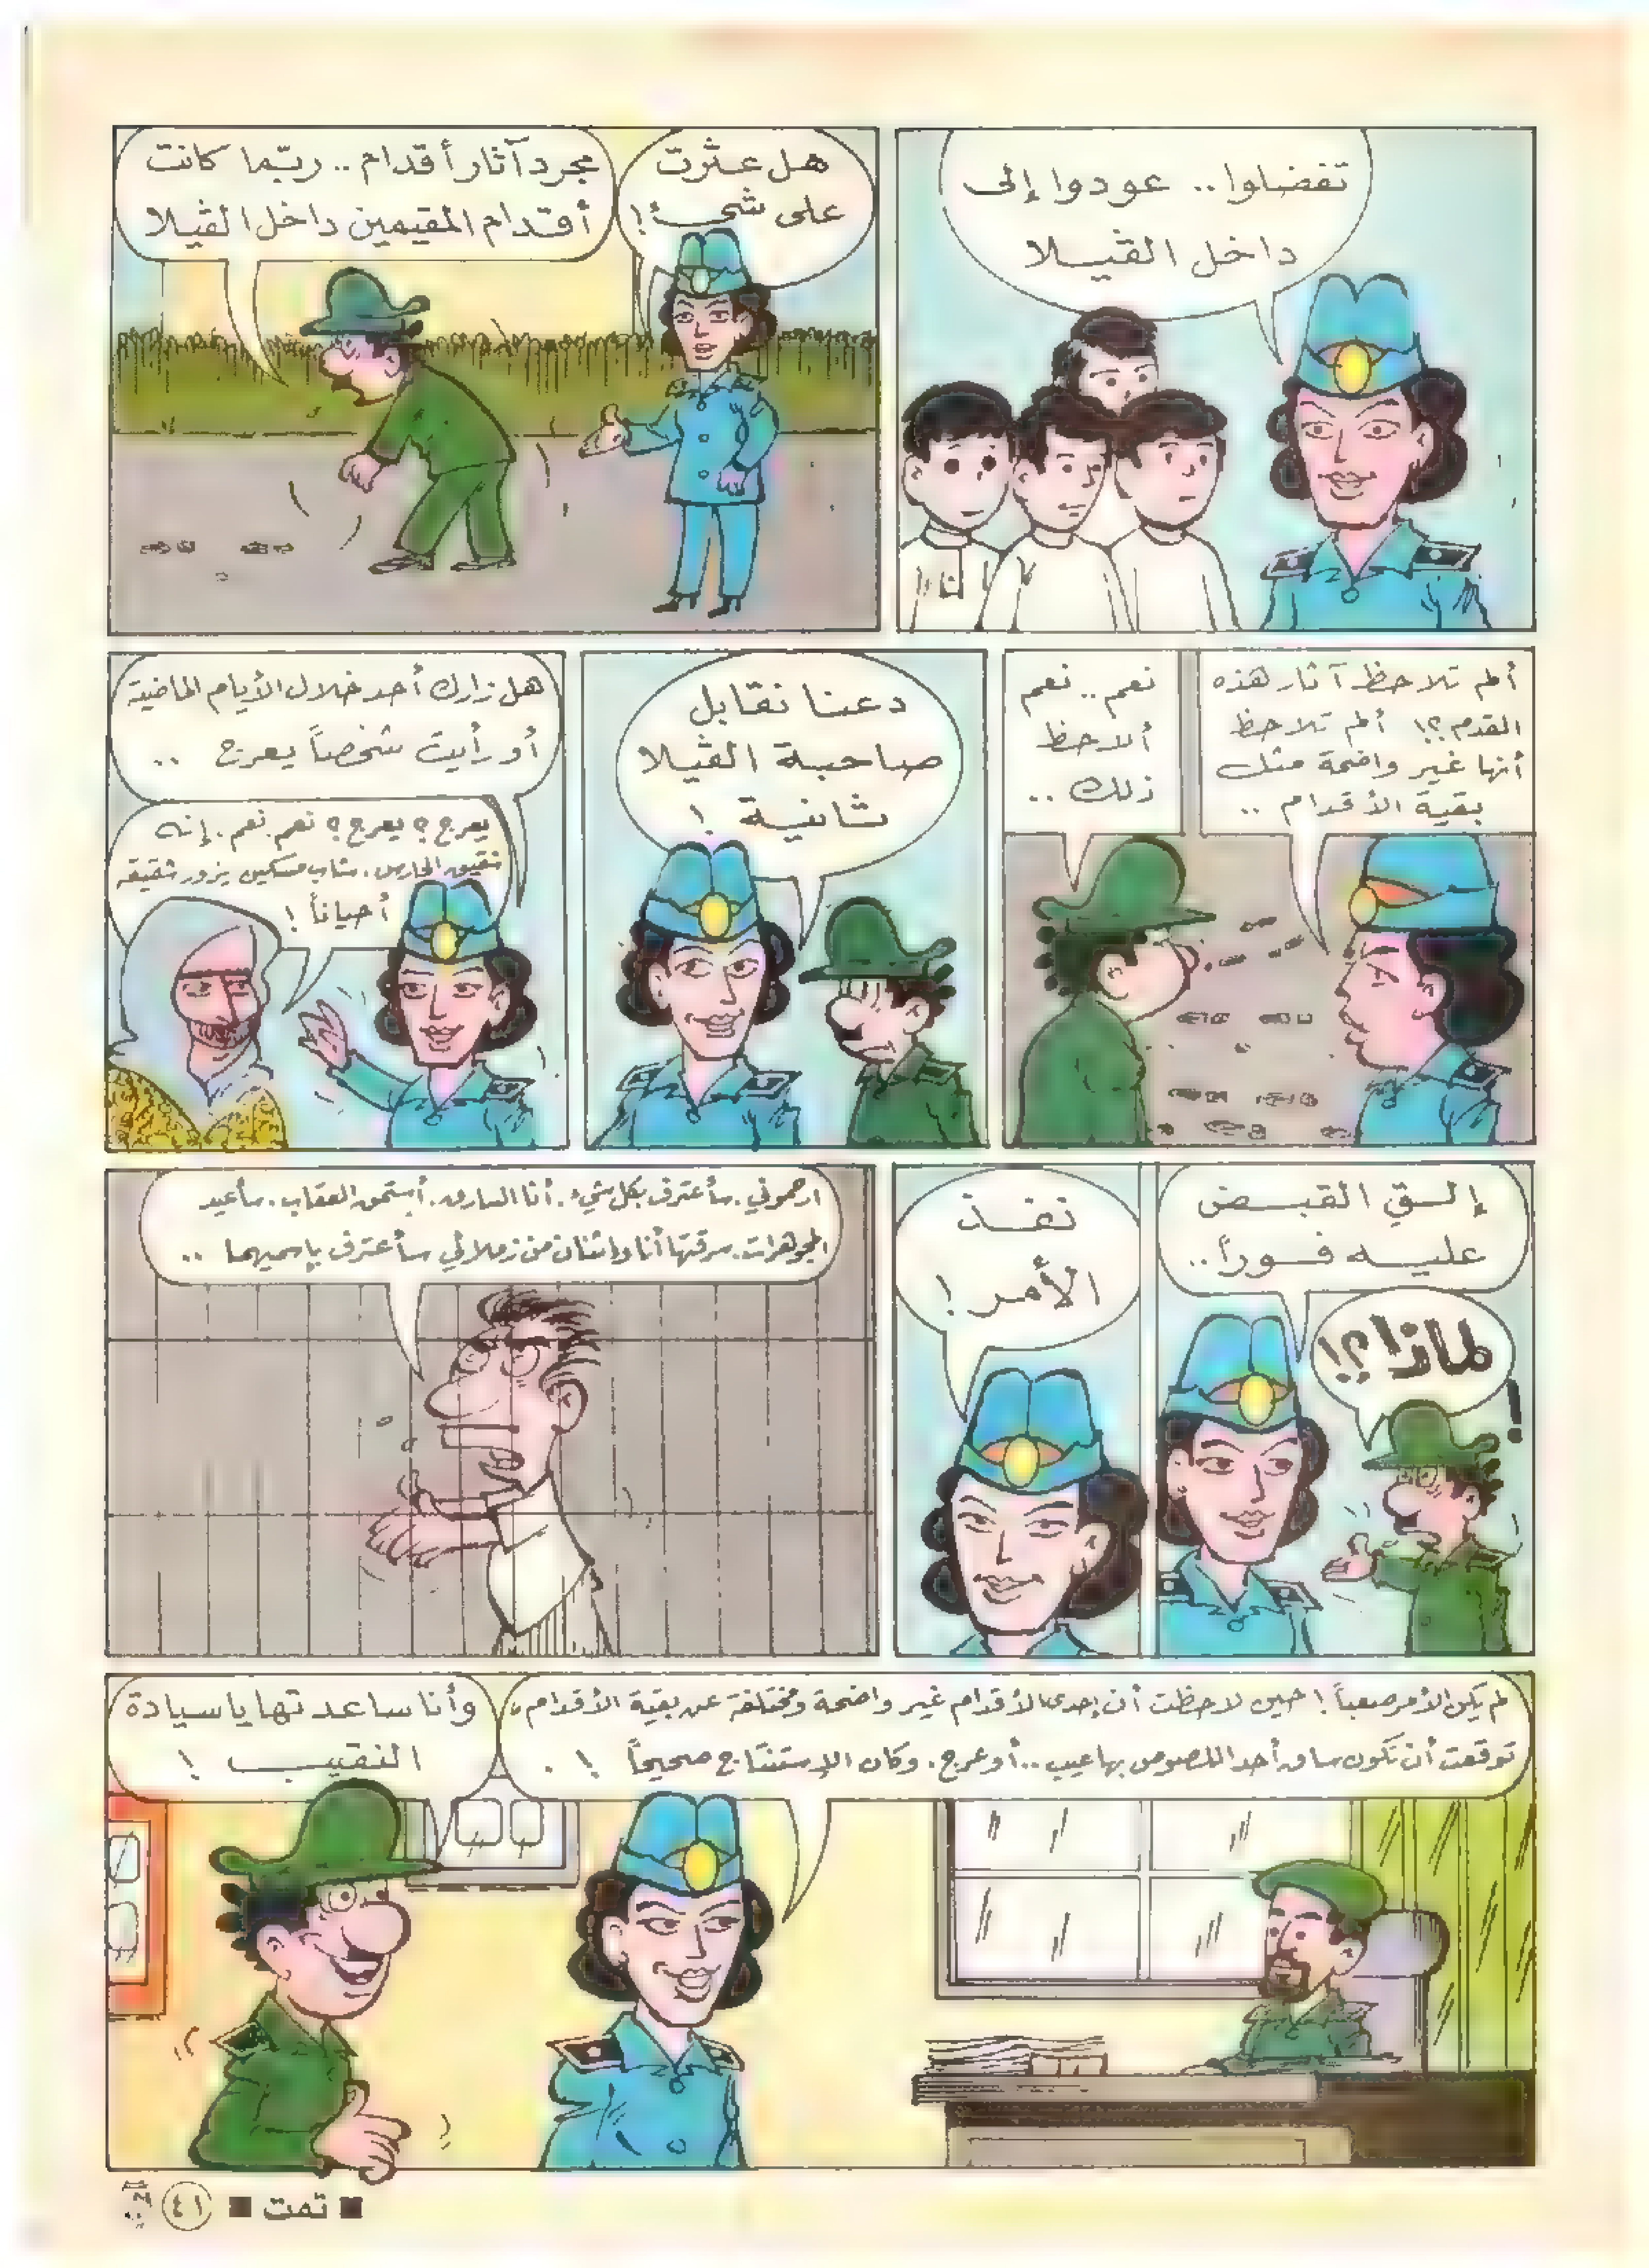 تفضلوا.. عودوا إلى
داخل الڤيلا
هل عثرت
على شيء!
مجرد آثار أقدام.. ربّما كانت
أقدام المقيمين داخل الڤيلا
ألم تلاحظ آثار هذه
القدم؟! ألم تلاحظ
أنها غير واضحة مثل
بقية الأقدام ..
نعم.. نعم
ألاحظ
ذلك ..
دعنا نقابل
صاحبة الڤيلا
ثانية !
هل زارك أحد خلال الأيام الماضية
أو رأيت شخصاً يعرج ..
يعرج؟ يعرج؟ نعم. نعم. إنه
شقيق الحارس. شاب مسكين يزور شقيقه
أحياناً!
إلقِ القبض
عليه فوراً..
لماذا؟!
نفذ
الأمر!
ارحموني. سأعترف بكل شيء. أنا السارق. أستحق العقاب. سأعيد
المجوهرات. سرقتها أنا واثنان من زملائي سأعترف بإسميهما ..
لم يكن الأمر صعباً! حين لاحظت أن إحدى الأقدام غير واضحة ومختلفة عن بقية الأقدام،
توقعت أن تكون ساق أحد اللصوص بها عيب.. أو عرج. وكان الإستنتاج صحيحاً !.
وأنا ساعدتها يا سيادة
النقيب !
■ تمت ■ ٤١